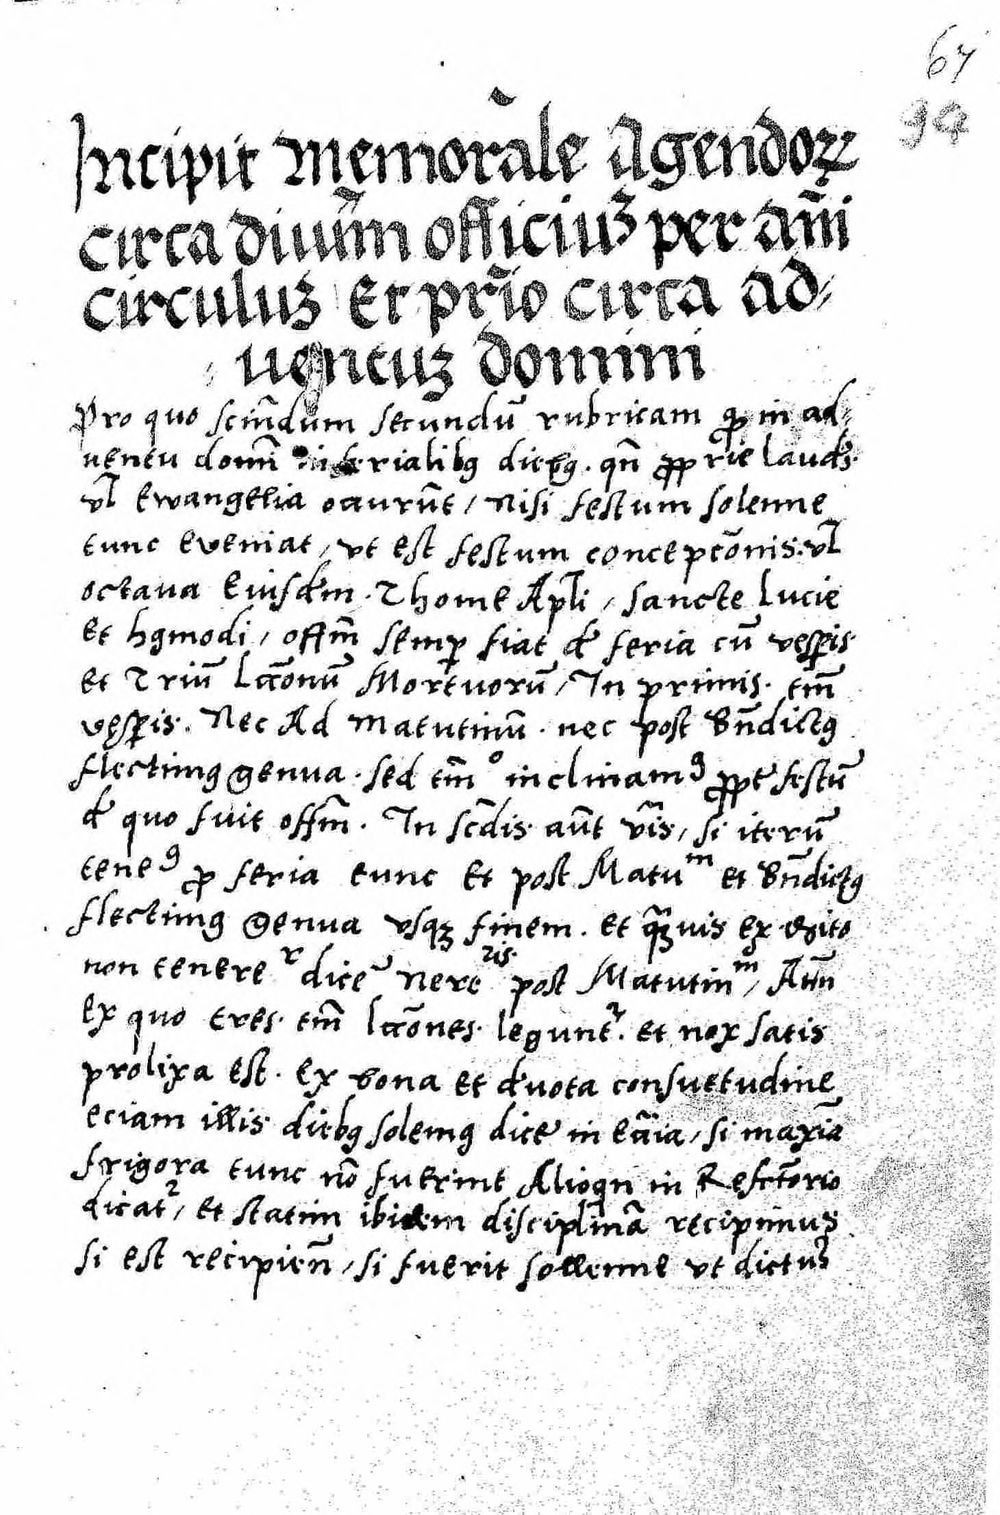 67
94
Incipit memorãle Agendoꝝ
circa diuinũm officiuʒ per añi
circuluʒ Et prĩo circa ad⸗
uentuʒ domini
Pro quo sciñdum secundũ rubricam ꝙ in ad⸗
uentu domĩ in ferialibꝯ diebꝯ. qñ ꝓprie laudes
vł Ewangelia occurũt / Nisi festum solenne
tunc eveniat / vt est festum concepcõnis. vł
octava Eiusdem. Thome Apłi / sancte Lucie
Et hꝯmodi / offm̃ semꝑ fiat de feria cũ vesꝑis
Et Triũ lcc̃onũ Mortuorũ / In primis. tm̃
vesꝑis. Nec Ad matutinũ. nec post Bñdictꝯ
flectimꝯ genua. sed tm̃o inclinamꝯ ꝓpt festũ
de quo fuit offm̃. In scd̃is aũt vr̃is / si iterũ
teneꝯ ꝓ feria tunc Et post Matum et Bñdictꝯ
flectimꝯ genua vsqʒ finem. et qʒ̃uis ex
non tenere r dice post Matutinm / Attñ
Ex quo tres tm̃ lcc̃ones legunt̉. Et nox satis
prolixa est. Ex bona et devota consuetudine
eciam illis diebꝯ solemꝯ dice in / si maxiã
frigora tunc nõ fuerint Alioqñ in Refect̃orio
dicat2 / et statim ibidem disciplinã recipimus
si est recipieñ / si fuerit sollenne vt dictũ